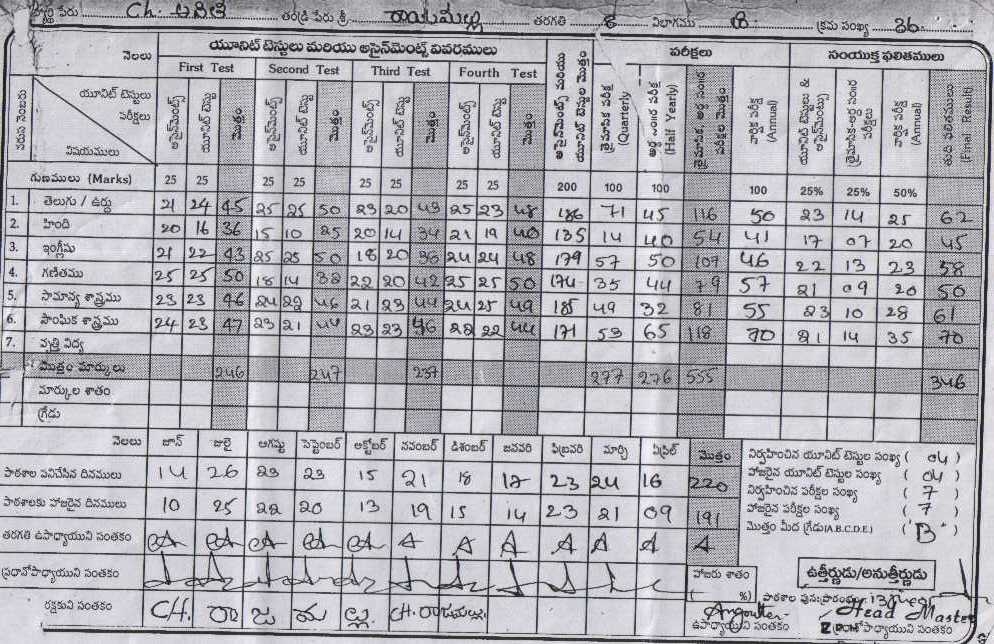 పేరు Ch. అదితి తండ్రి పేరు శ్రీ రాజమల్లు తరగతి 8 విభాగము B క్రమ సంఖ్య 36
నెలలు యూనిట్ టెస్టులు మరియు అసైన్‌మెంట్స్ వివరములు పరీక్షలు సంయుక్త ఫలితములు
First Test Second Test Third Test Fourth Test
వరుస నెంబరు యూనిట్ టెస్టులు పరీక్షలు విషయములు అసైన్‌మెంట్స్ యూనిట్ టెస్టు మొత్తం అసైన్‌మెంట్స్ యూనిట్ టెస్టు మొత్తం అసైన్‌మెంట్స్ యూనిట్ టెస్టు మొత్తం అసైన్‌మెంట్స్ యూనిట్ టెస్టు మొత్తం అసైన్‌మెంట్స్ మరియు యూనిట్ టెస్టుల మొత్తం త్రైమాసిక పరీక్ష (Quarterly) అర్ధ సంవత్సర పరీక్ష (Half Yearly) వార్షిక పరీక్ష (Annual) యూనిట్ టెస్టులు & అసైన్‌మెంట్సు వార్షిక పరీక్ష (Annual) తుది ఫలితములు (Final Result)
గుణములు (Marks) 25 25 25 25 25 25 25 25 200 100 100 100 25% 25% 50%
1. తెలుగు / ఉర్దు 21 24 45 25 25 50 23 20 43 25 23 48 186 71 45 116 50 23 14 25 62
2. హింది 20 16 36 15 10 25 20 14 34 21 19 40 135 14 40 54 41 17 07 20 45
3. ఇంగ్లీషు 21 22 43 25 25 50 18 20 38 24 24 48 179 57 50 107 46 22 13 23 58
4. గణితము 25 25 50 18 14 32 22 20 42 25 25 50 174 35 44 79 57 21 09 20 50
5. సామాన్య శాస్త్రము 23 23 46 24 22 46 21 23 44 24 25 49 185 49 32 81 55 23 10 28 61
6. సాంఘిక శాస్త్రము 24 23 47 23 21 44 23 23 46 22 22 44 171 53 65 118 70 21 14 35 70
7. వృత్తి విద్య
మొత్తం మార్కులు 246 247 237 277 276 555 346
మార్కుల శాతం
గ్రేడు
నెలలు జూన్ జులై ఆగష్టు సెప్టెంబర్ అక్టోబర్ నవంబర్ డిశంబర్ జనవరి ఫిబ్రవరి మార్చి ఏప్రిల్ మొత్తం
నిర్వహించిన యూనిట్ టెస్టుల సంఖ్య ( 04 )
పాఠశాల పనిచేసిన దినములు 14 26 23 23 15 21 18 17 23 24 16 220
హాజరైన యూనిట్ టెస్టుల సంఖ్య ( 04 )
నిర్వహించిన పరీక్షల సంఖ్య ( 7 )
పాఠశాలకు హాజరైన దినములు 10 25 22 20 13 19 15 14 23 21 09 191
హాజరైన పరీక్షల సంఖ్య ( 7 )
మొత్తం మీద గ్రేడు(A.B.C.D.E.) ( 'B' )
తరగతి ఉపాధ్యాయుని సంతకం
ప్రధానోపాధ్యాయుని సంతకం హాజరు శాతం ఉత్తీర్ణుడు/అనుత్తీర్ణుడు
( %) పాఠశాల పునఃప్రారంభం
రక్షకుని సంతకం CH. రా జ మ ల్లు CH. రాజమల్లు Head Master
ఉపాధ్యాయుని సంతకం ప్రధానోపాధ్యాయుని సంతకం